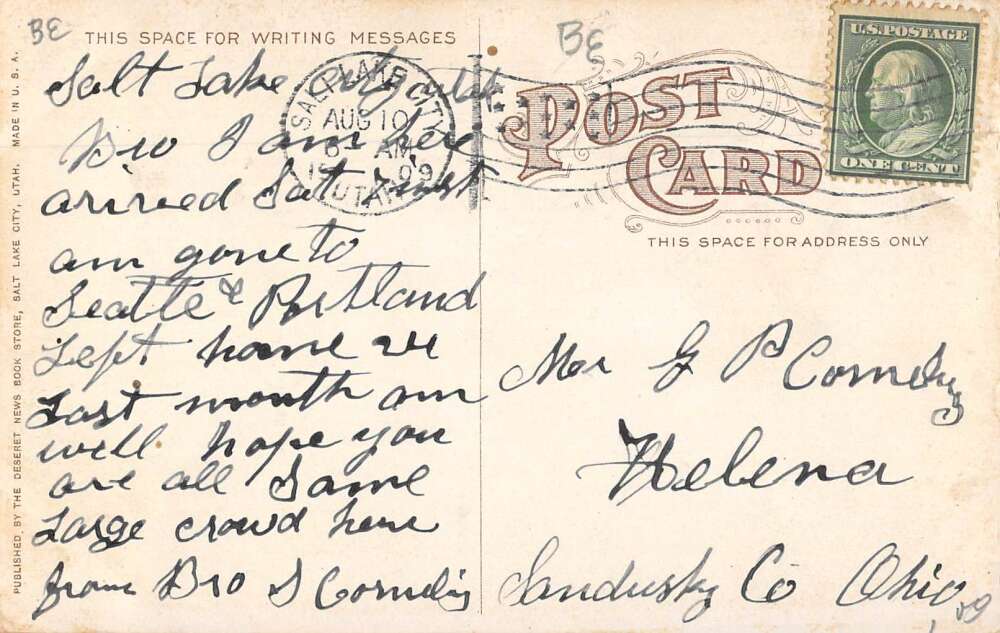 BE
THIS SPACE FOR WRITING MESSAGES
Salt Lake city utah
Bro I am here
arrived Sat just
am gone to
Seattle & Portland
Left home 24
Last month am
well hope you
are all Same
Large crowd here
from Bro S
BE
POST
CARD
THIS SPACE FOR ADDRESS ONLY
SALT LAKE CITY
AUG 10
AM
UTAH
U.S. POSTAGE
ONE CENT
G P
Helena
Sandusky Co Ohio
PUBLISHED BY THE DESERET NEWS BOOK STORE, SALT LAKE CITY, UTAH. MADE IN U. S. A.